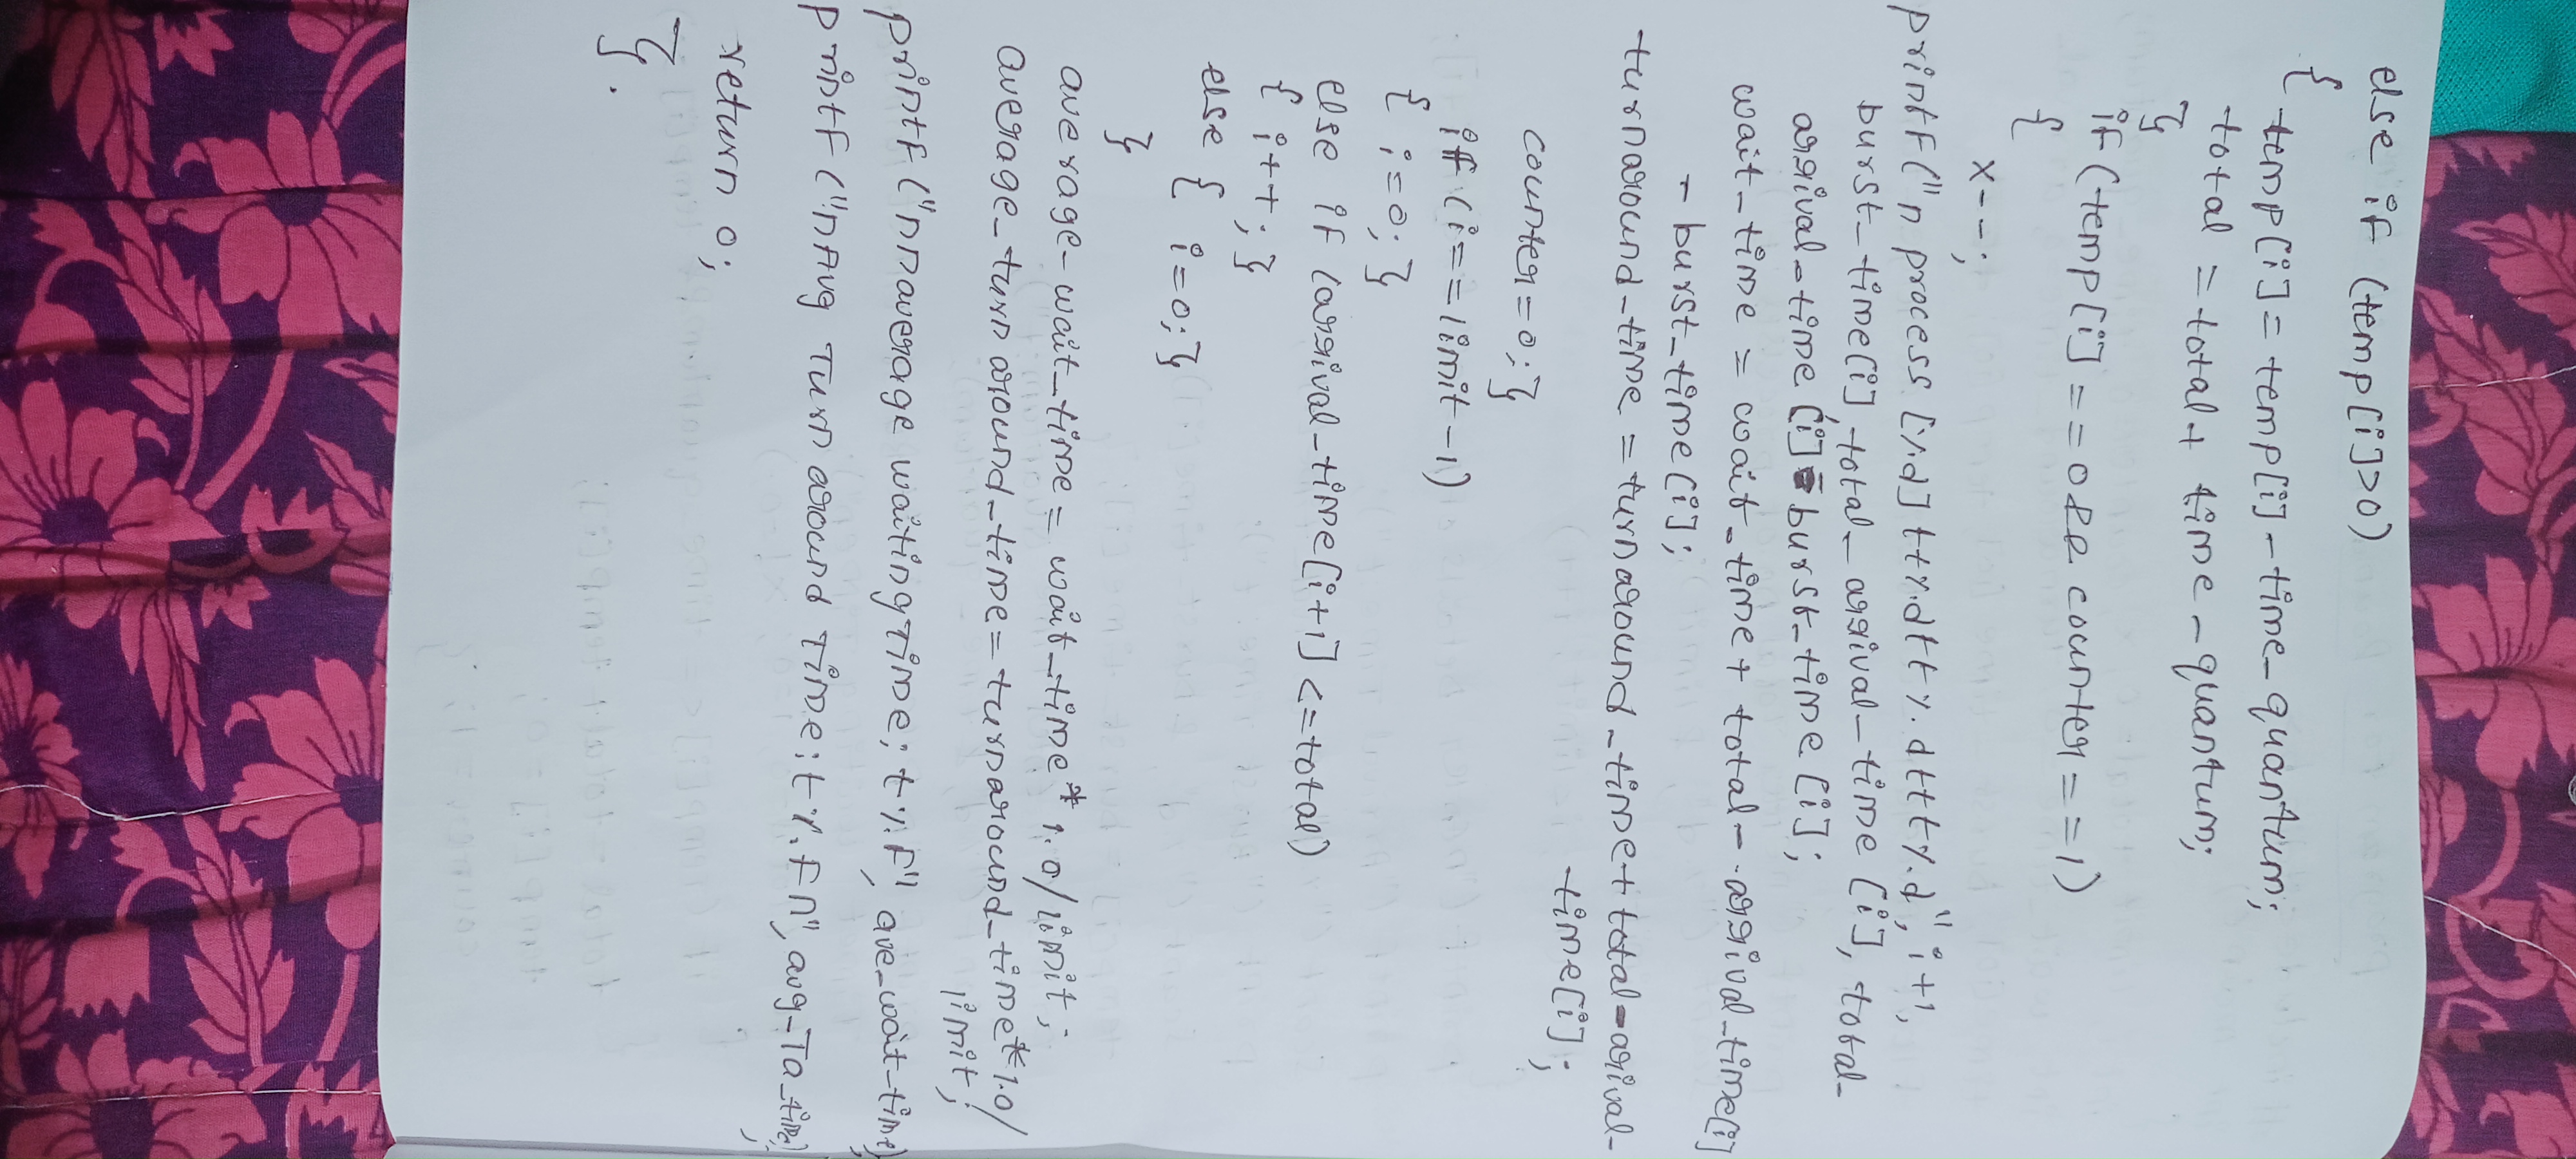 else if (temp[i]>0)
{ temp[i] = temp[i] - time_quantum;
total = total + time - quantum;
}
if (temp[i] == 0 && counter == 1)
{
x--;
printf("n process [%d] tt%dtt%.dttt%.d", i+1,
burst_time[i], total - arrival_time[i], total-
arrival_time[i] - burst_time[i];
wait_time = wait_time + total - arrival_time[i]
- burst_time[i];
turnaround_time = turnaround_time + total - arival-
time[i];
counter = 0; }
if (i == limit - 1)
{ i = 0; }
else if (arrival_time[i+1] <= total)
{ i++; }
else { i = 0; }
}
average-wait_time = wait_time * 1.0/limit;
average_turnaround_time = turnaround_time * 1.0/
limit;
printf("nnaverage waitingTime; t%.f", ave_wait_time);
printf("nAvg Turnaround Time: t%.fn", avg_Ta_time);
return 0;
}.